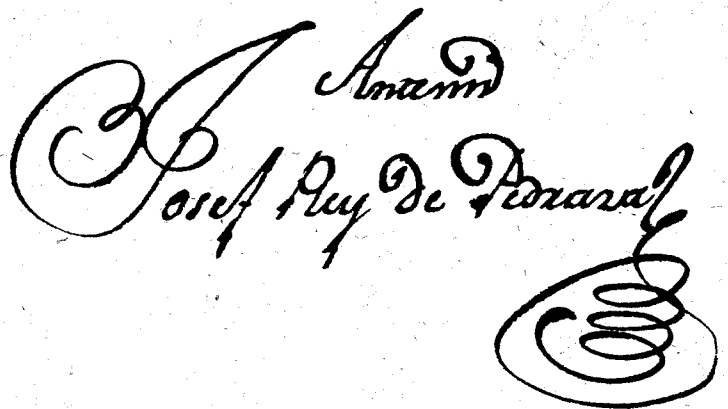 Antonio
Josef Rey de Pedraza